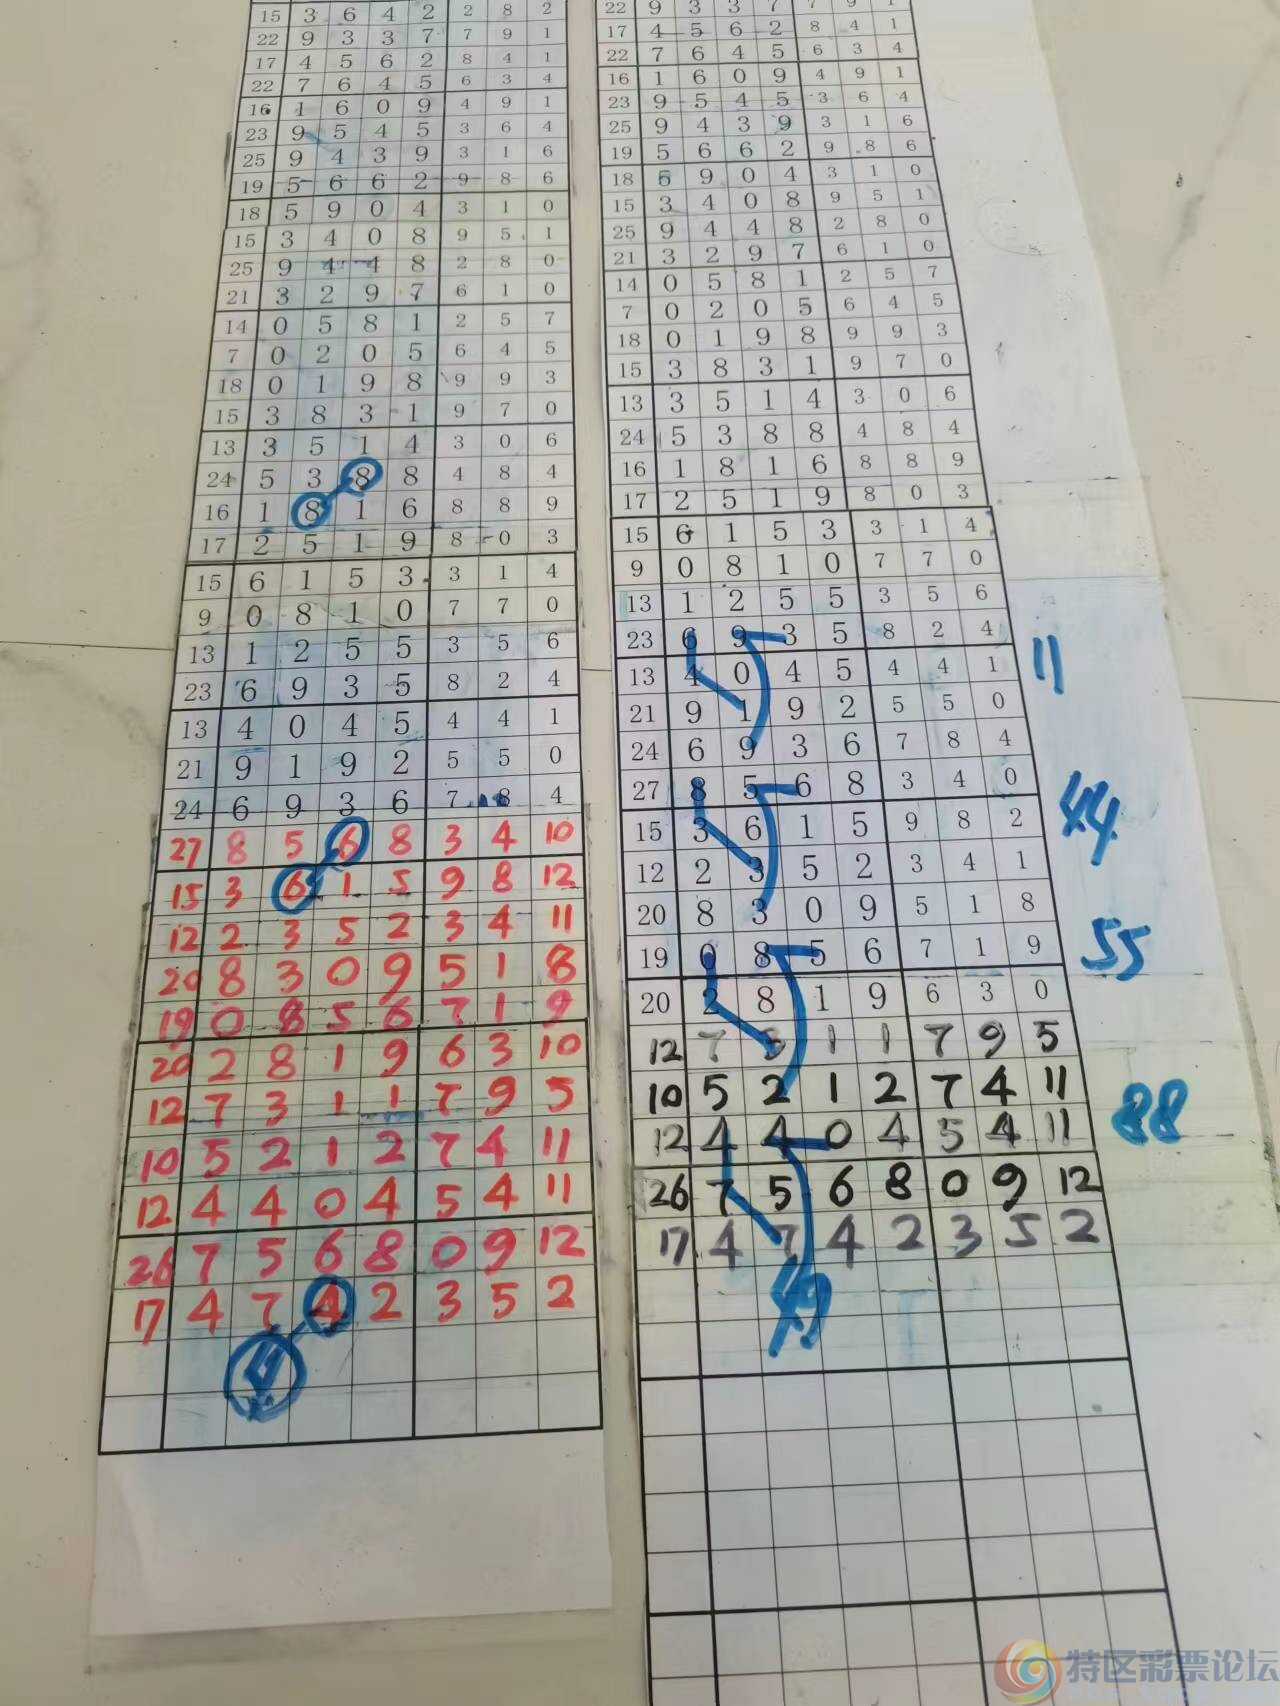 15 3 6 4 2 2 8 2
22 9 3 3 7 7 9 1
17 4 5 6 2 8 4 1
22 7 6 4 5 6 3 4
16 1 6 0 9 4 9 1
23 9 5 4 5 3 6 4
25 9 4 3 9 3 1 6
19 5 6 6 2 9 8 6
18 5 9 0 4 3 1 0
15 3 4 0 8 9 5 1
25 9 4 4 8 2 8 0
21 3 2 9 7 6 1 0
14 0 5 8 1 2 5 7
7 0 2 0 5 6 4 5
18 0 1 9 8 9 9 3
15 3 8 3 1 9 7 0
13 3 5 1 4 3 0 6
24 5 3 8 8 4 8 4
16 1 8 1 6 8 8 9
17 2 5 1 9 8 0 3
15 6 1 5 3 3 1 4
9 0 8 1 0 7 7 0
13 1 2 5 5 3 5 6
23 6 9 3 5 8 2 4
13 4 0 4 5 4 4 1
21 9 1 9 2 5 5 0
24 6 9 3 6 7 8 4
27 8 5 6 8 3 4 10
15 3 6 1 5 9 8 12
12 2 3 5 2 3 4 11
20 8 3 0 9 5 1 8
19 0 8 5 6 7 1 9
20 2 8 1 9 6 3 10
12 7 3 1 1 7 9 5
10 5 2 1 2 7 4 11
12 4 4 0 4 5 4 11
26 7 5 6 8 0 9 12
17 4 7 4 2 3 5 2
22 9 3 3 7 7 9 1
17 4 5 6 2 8 4 1
22 7 6 4 5 6 3 4
16 1 6 0 9 4 9 1
23 9 5 4 5 3 6 4
25 9 4 3 9 3 1 6
19 5 6 6 2 9 8 6
18 5 9 0 4 3 1 0
15 3 4 0 8 9 5 1
25 9 4 4 8 2 8 0
21 3 2 9 7 6 1 0
14 0 5 8 1 2 5 7
7 0 2 0 5 6 4 5
18 0 1 9 8 9 9 3
15 3 8 3 1 9 7 0
13 3 5 1 4 3 0 6
24 5 3 8 8 4 8 4
16 1 8 1 6 8 8 9
17 2 5 1 9 8 0 3
15 6 1 5 3 3 1 4
9 0 8 1 0 7 7 0
13 1 2 5 5 3 5 6
23 6 9 3 5 8 2 4
13 4 0 4 5 4 4 1 11
21 9 1 9 2 5 5 0
24 6 9 3 6 7 8 4
27 8 5 6 8 3 4 0
15 3 6 1 5 9 8 2 44
12 2 3 5 2 3 4 1
20 8 3 0 9 5 1 8
19 0 8 5 6 7 1 9 55
20 2 8 1 9 6 3 0
12 7 3 1 1 7 9 5
10 5 2 1 2 7 4 11 88
12 4 4 0 4 5 4 11
26 7 5 6 8 0 9 12
17 4 7 4 2 3 5 2
49
特区彩票论坛